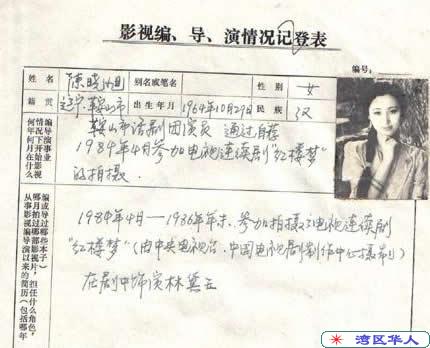 影视编、导、演情况记登表
编号:
姓名 陈晓旭 别名或笔名 性别 女
籍贯 辽宁鞍山市 出生年月 1964年10月29日 民族 汉
何年何月在什么情况下开始影视编导演事业
鞍山市话剧团演员 通过自荐
1984年4月参加电视连续剧“红楼梦”
的拍摄.
从事影视编导演以来的简历(包括哪年哪月拍过哪部影视片,担任什么角色,编或导过哪些本子)
1984年4月—1986年年末.参加拍摄了电视连续剧
“红楼梦”(由中央电视台.中国电视剧制作中心摄制)
在剧中饰演林黛玉
湾区华人